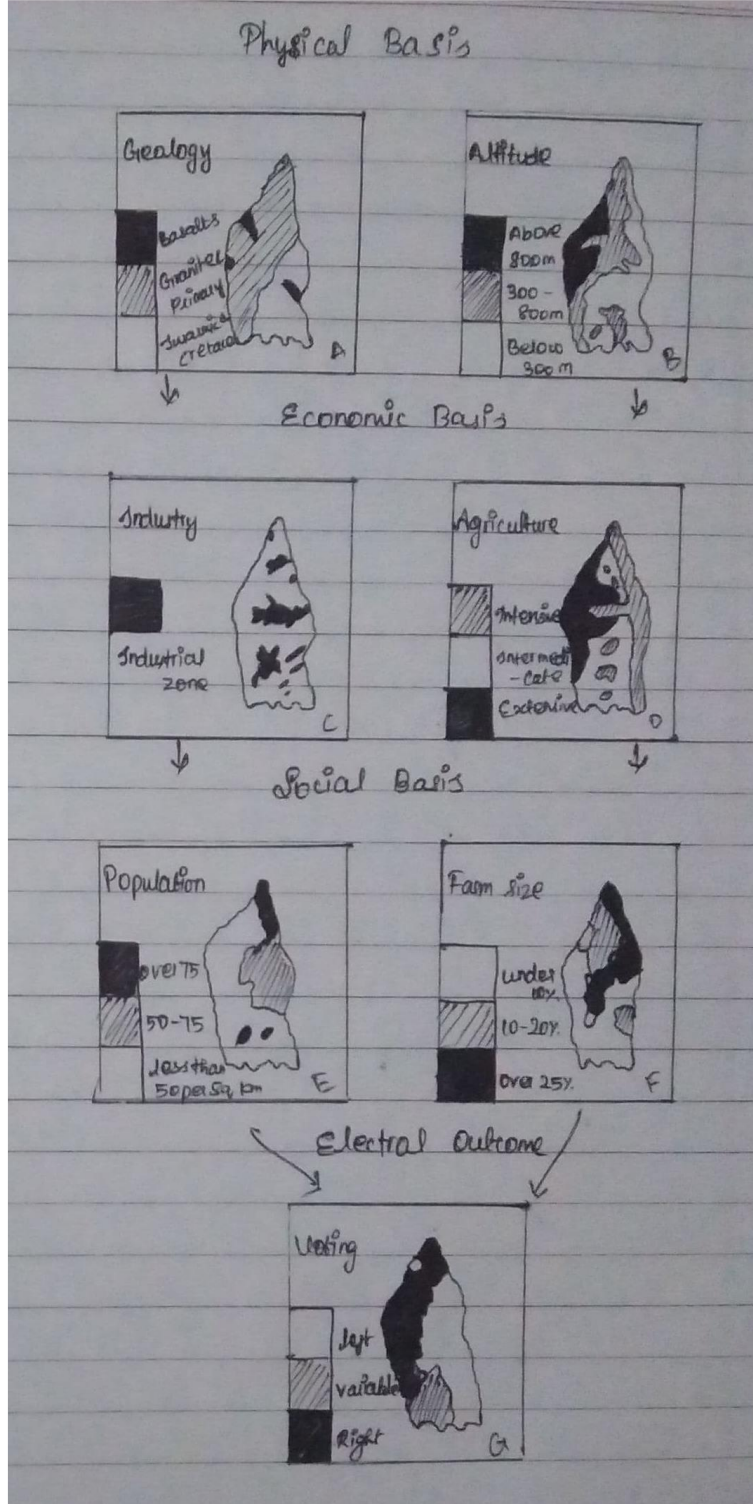 Physical Basis
Geology
Basalts
Granites
Primary
Jurassic &
Cretace
A
Altitude
Above
800m
300 -
800m
Below
300m
B
Economic Basis
Industry
Industrial
zone
C
Agriculture
Intensive
Intermedi
-cate
Extensive
D
Social Basis
Population
over 75
50-75
less than
50 per sq km
E
Farm size
under
10%
10-20%
over 25%
F
Electral Outcome
Voting
left
variable
Right
G